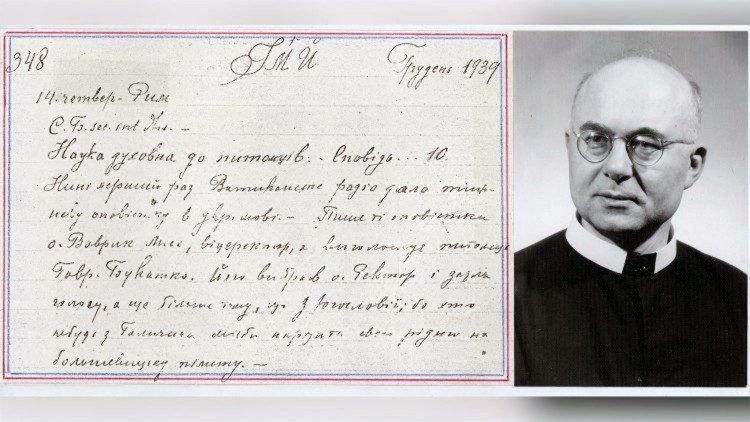 348 ІМЙ Грудень 1939
14. четвер - Рим
С. Б. sec. int.
Наука духовна до питомців. - Сповідь... 10.
Нині перший раз Ватиканське радіо дало
в укр. мові. - Пише ті оповістки
о. Ваврик Мих., віцеректор, а виголошує питомець
Гавр. Букатко. Його вибрав о. Ректор і
голосу, а ще більше тому, що з Югославії; бо хто
небудь з Галичини міг би наразити свою рідню на
большевицьку пімсту. -